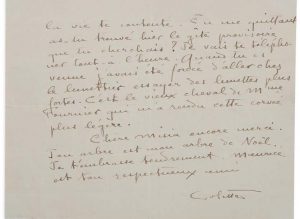 la vie te contente. En me quittant
as-tu trouvé hier le gîte provisoire
que tu cherchais? Je vais te télépho-
ner tout à l'heure. Quand tu es
venue j'avais été forcée d'aller chez
le lunettier essayer des lunettes plus
fortes. C'est le vieux cheval de Mme
Fournier qui m'a rendu cette corvée
plus légère.
Chère Misia encore merci.
Ton arbre est mon arbre de Noël.
Je t'embrasse tendrement. Maurice
est ton respectueux ami
Colette